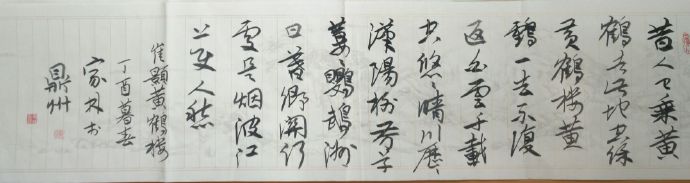 昔人已乘黄
鶴去此地空餘
黄鶴樓黄
鶴一去不復
返白雲千載
空悠々晴川歷々
漢陽樹芳草
萋々鸚鵡洲
日暮鄉關何
處是烟波江
上使人愁
崔顥黄鶴樓
丁酉暮春
家於
鼎州